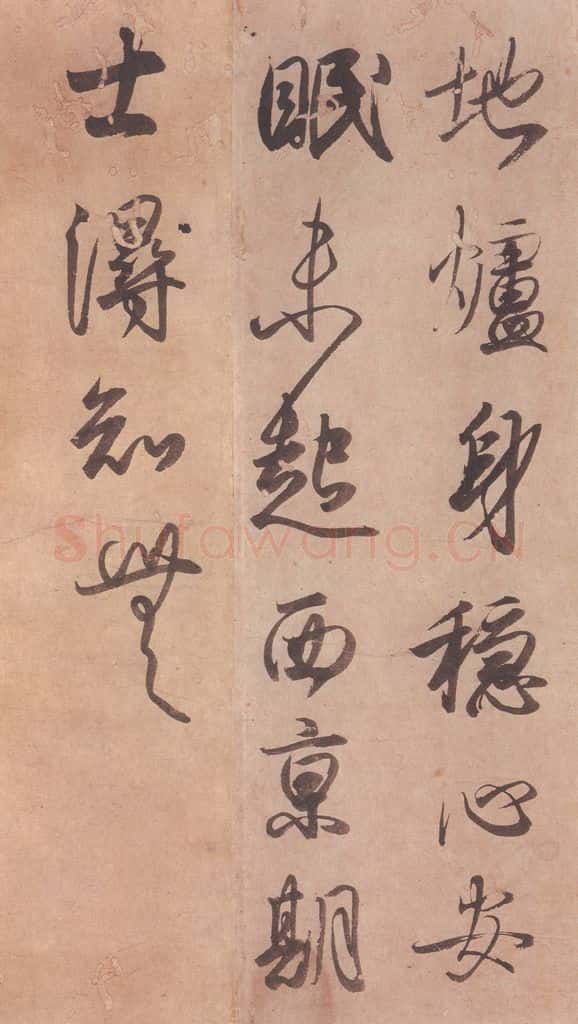 地爐身穩心安
眠未起西京期
士得知無
Shufawang.cn